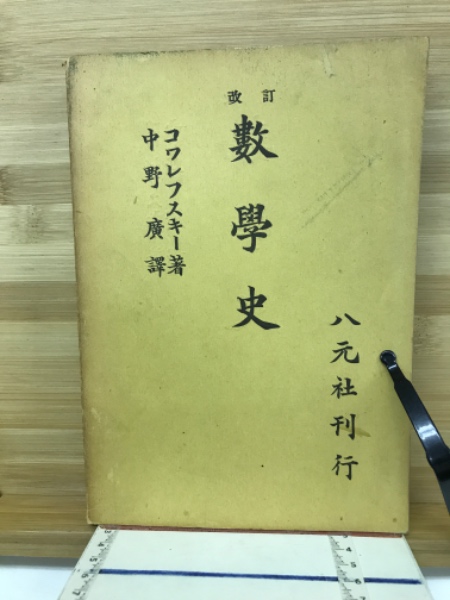 改訂
數學史
コワレフスキー著
中野廣譯
八元社刊行